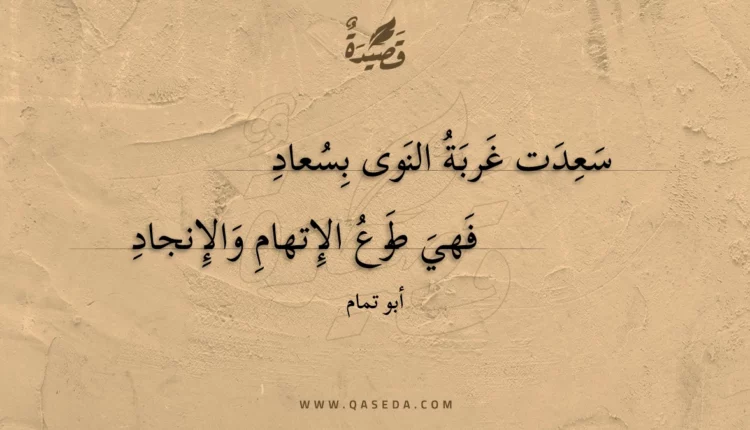 قَصِيْدَةٌ
سَعِدَت غَربَةُ النَوى بِسُعادِ
فَهيَ طَوعُ الإِتهامِ وَالإِنجادِ
أبو تمام
WWW.QASEDA.COM